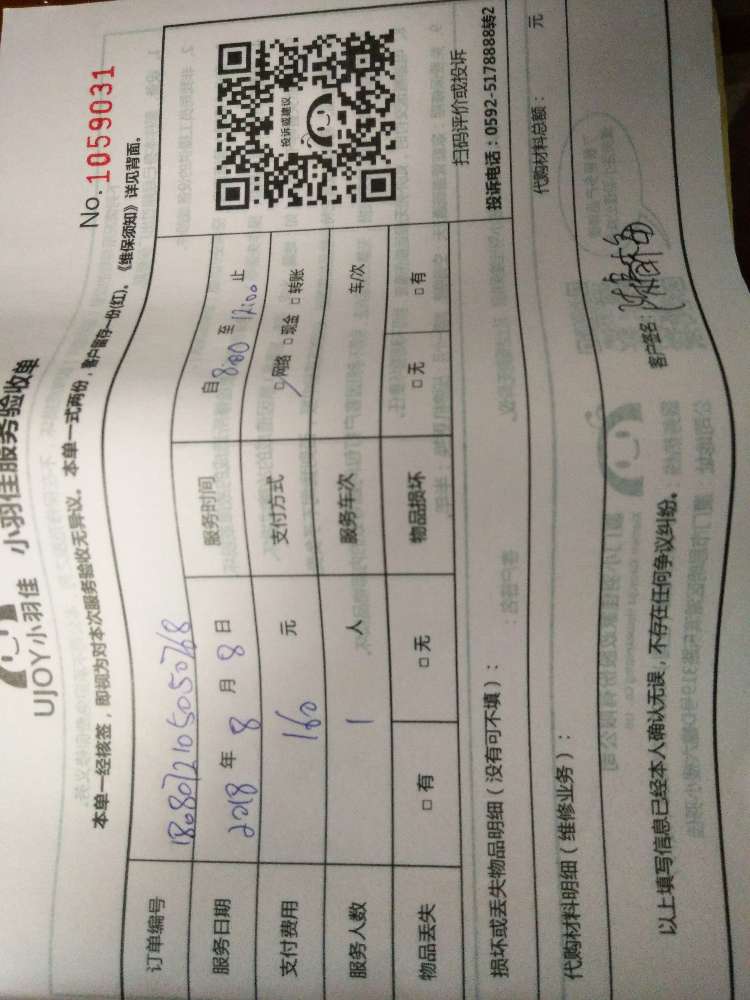 UJOY小羽佳 小羽佳服务验收单
No. 1059031
本单一经核签，即视为对本次服务验收无异议。本单一式两份，客户留存一份(红)。《维保须知》详见背面。
订单编号 180807210505050768
服务日期 2018 年 8 月 8 日 服务时间 自 8:00 至 12:00 止
支付费用 160 元 支付方式 □网络 □现金 □转账
服务人数 1 人 服务车次 车/次
物品丢失 □有 □无 物品损坏 □无 □有
投诉或建议
扫码评价或投诉
投诉电话：0592-5178888转2
损坏或丢失物品明细（没有可不填）：
代购材料明细（维修业务）： 代购材料总额： 元
以上填写信息已经本人确认无误，不存在任何争议纠纷。 客户签名：